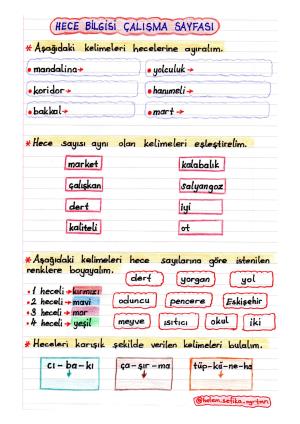 HECE BİLGİSİ ÇALIŞMA SAYFASI
* Aşağıdaki kelimeleri hecelerine ayıralım.
• mandalina→ • yolculuk→
• koridor→ • hanımeli→
• bakkal→ • mart→
* Hece sayısı aynı olan kelimeleri eşleştirelim.
market kalabalık
çalışkan salyangoz
dert iyi
kaliteli ot
* Aşağıdaki kelimeleri hece sayılarına göre istenilen
renklere boyayalım.
dert yorgan yol
• 1 heceli→kırmızı
• 2 heceli→mavi oduncu pencere Eskişehir
• 3 heceli→mor
• 4 heceli→yeşil meyve ısıtıcı okul iki
* Heceleri karışık şekilde verilen kelimeleri bulalım.
cı - ba - kı ça - şır - ma tüp - kü - ne - ha
@helen.sefika_ogrtmn